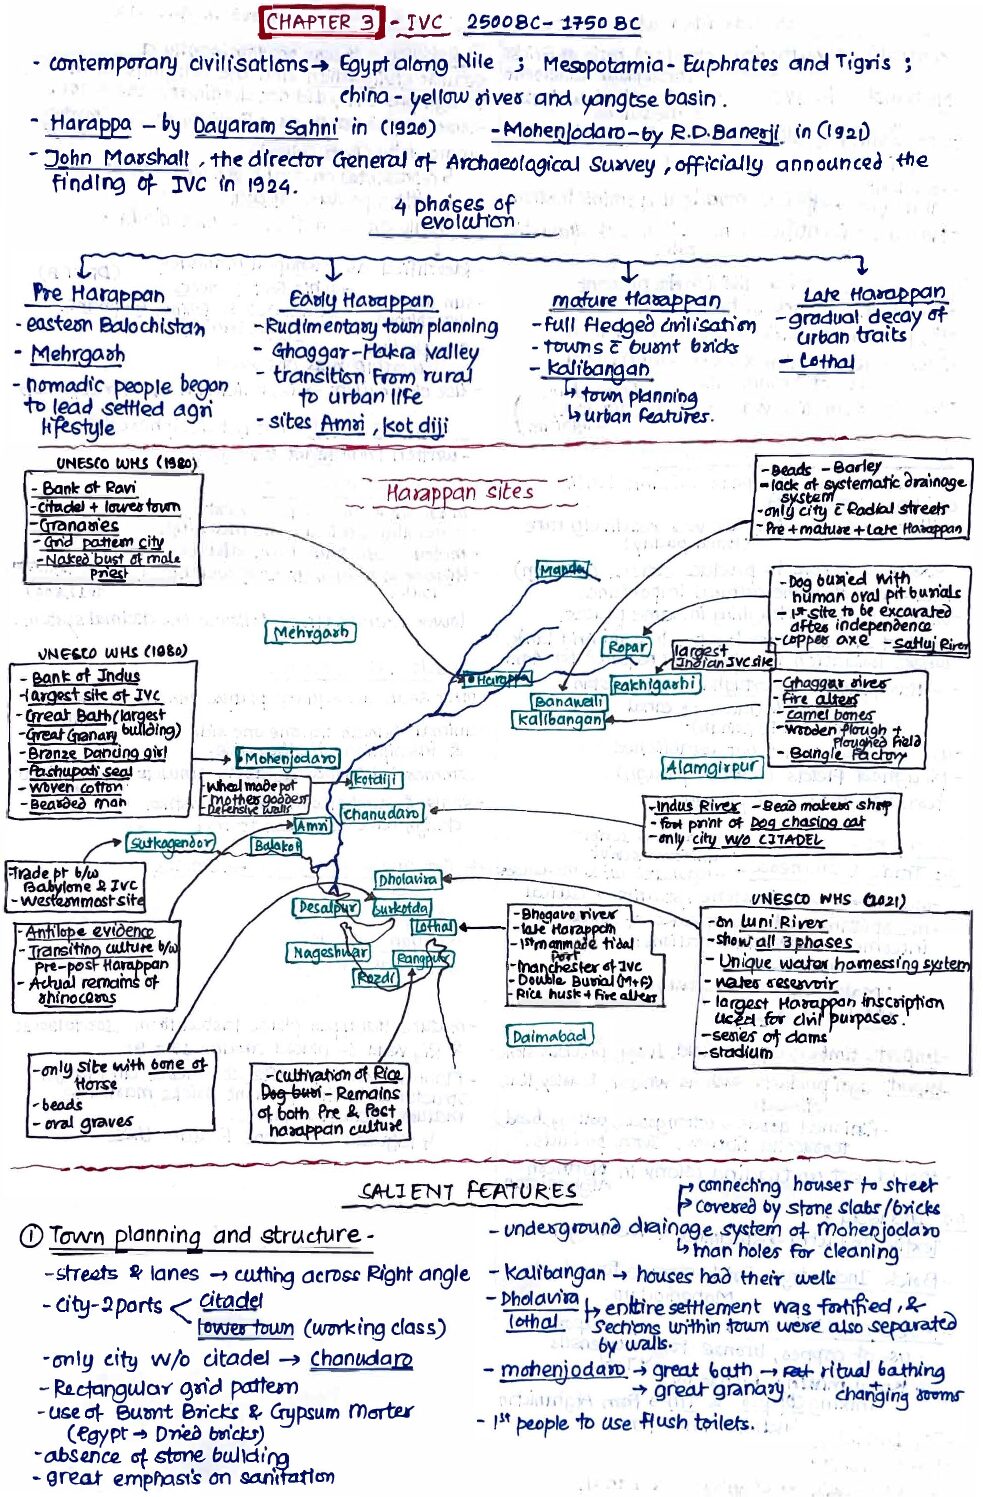 CHAPTER 3 - IVC 2500BC - 1750 BC
- contemporary civilisations → Egypt along Nile ; Mesopotamia - Euphrates and Tigris ;
china - yellow river and yangtse basin.
- Harappa - by Dayaram Sahni in (1920) - Mohenjodaro - by R.D. Banerji in (1921)
- John Marshall, the director General of Archaeological Survey, officially announced the
finding of IVC in 1924.
4 phases of
evolution
Pre Harappan
- eastern Balochistan
- Mehrgarh
- nomadic people began
to lead settled agri
lifestyle
Early Harappan
- Rudimentary town planning
- Ghaggar-Hakra valley
- transition from rural
to urban life
- sites Amri, Kot diji
mature Harappan
- full fledged civilisation
- towns c̄ burnt bricks
- Kalibangan
↳ town planning
↳ urban features.
Late Harappan
- gradual decay of
urban traits
- Lothal
Harappan sites
UNESCO WHS (1980)
- Bank of Ravi
- citadel + lower town
- Granaries
- Grid pattern city
- Naked bust of male
priest
- Beads - Barley
- lack of systematic drainage
system
- only city c̄ Radial streets
- Pre + mature + Late Harappan
Manda
- Dog buried with
human oval pit burials
- 1st site to be excavated
after independence
- copper axe - Satluj River
Mehrgarh
Ropar
largest
Indian IVC site
Harappa
Rakhigarhi
Banawali
Kalibangan
- Ghaggar river
- fire alters
camel bones
- wooden plough +
Ploughed field
- Bangle Factory
UNESCO WHS (1980)
- Bank of Indus
- largest site of IVC
- Great Bath (largest
building)
- Great Granary
- Bronze Dancing girl
- Pashupati seal
- woven cotton
- Bearded man
Mohenjodaro
Alamgirpur
Kotdiji
- wheel made pot
mother goddess
- Defensive walls
Chanudaro
- Indus River - Bead makers shop
- foot print of Dog chasing cat
- only city w/o CITADEL
Amri
Sutkagendor
Balakot
- Trade pt b/w
Babylone & IVC
- Westernmost site
Dholavira
Desalpur
Surkotda
Lothal
Nageshwar
Rangpur
Rozdi
- Antilope evidence
- Transiting culture b/w
pre-post Harappan
- Actual remains of
rhinoceros
- Bhogavo river
- late Harappan
- 1st manmade tidal
port
- Manchester of IVC
- Double Burial (M+F)
- Rice husk + Fire alters
UNESCO WHS (2021)
- on Luni River
- show all 3 phases
- Unique water harnessing system
- water reservoir
- largest Harappan inscription
used for civil purposes.
- series of dams
- stadium
Daimabad
- only site with bone of
Horse
- beads
- oral graves
- cultivation of Rice
Dog buri - Remains
of both Pre & Post
harappan culture
SALIENT FEATURES
① Town planning and structure -
- streets & lanes → cutting across Right angle
- city - 2 parts < citadel
lower town (working class)
- only city w/o citadel → Chanudaro
- Rectangular grid pattern
- use of Burnt Bricks & Gypsum Morter
(egypt → Dried bricks)
- absence of stone building
- great emphasis on sanitation
→ connecting houses to street
→ covered by stone slabs/bricks
- underground drainage system of Mohenjodaro
↳ man holes for cleaning
- Kalibangan → houses had their wells
- Dholavira
Lothal
↳ entire settlement was fortified, &
↳ sections within town were also separated
by walls.
- mohenjodaro → great bath → ritual bathing
+
→ great granary. changing rooms
- 1st people to use flush toilets.